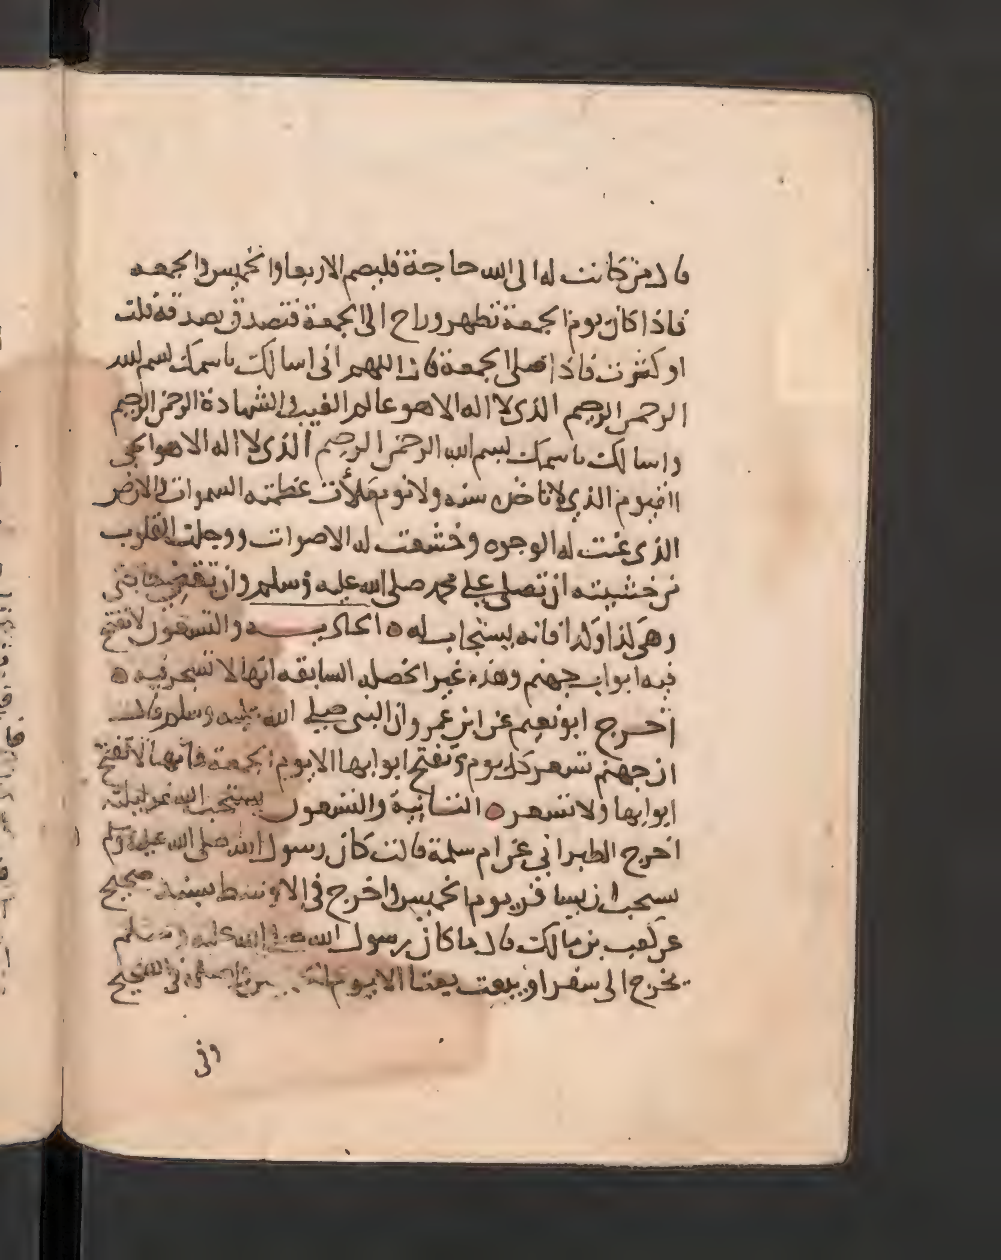 قال من كانت له الى الله حاجة فليصم الاربعا والخميس والجمعه
فاذا كان يوم الجمعة تطهر وراح الى الجمعة فتصدق بصدقة قلت
او كثرت فاذا صلى الجمعة قال اللهم انى اسالك باسمك بسم الله
الرحمن الرحيم الذى لا اله الا هو عالم الغيب والشهادة الرحمن الرحيم
واسالك باسمك بسم الله الرحمن الرحيم الذى لا اله الا هو الحى
القيوم الذي لا تاخذه سنه ولا نوم ملأت عظمته السموات والارض
الذى عنت له الوجوه وخشعت له الاصوات ووجلت القلوب
من خشيته ان تصلى على محمد صلى الله عليه وسلم وان تقضى حاجتى
وهى كذا وكذا فانه يستجاب له ه الحاديه والتسعون لا تفتح
فيه ابواب جهنم وهذه غير الخصله السابقه انها لا تسجر فيه ه
اخرج ابو نعيم عن ابن عمر وان النبى صلى الله عليه وسلم قال
ان جهنم تسعر كل يوم وتفتح ابوابها الا يوم الجمعة فانها لا تفتح
ابوابها ولا تسعر ه الثانية والتسعون يستحب السفر ليلته
اخرج الطبرانى عن ام سلمة قالت كان رسول الله صلى الله عليه وسلم
يستحب ان يسافر يوم الخميس واخرج فى الاوسط بسند صحيح
عن كعب بن مالك قال ما كان رسول الله صلى الله عليه وسلم
يخرج الى سفر او يبعث بعثا الا يوم الخميس واصله فى الصحيح
وفى